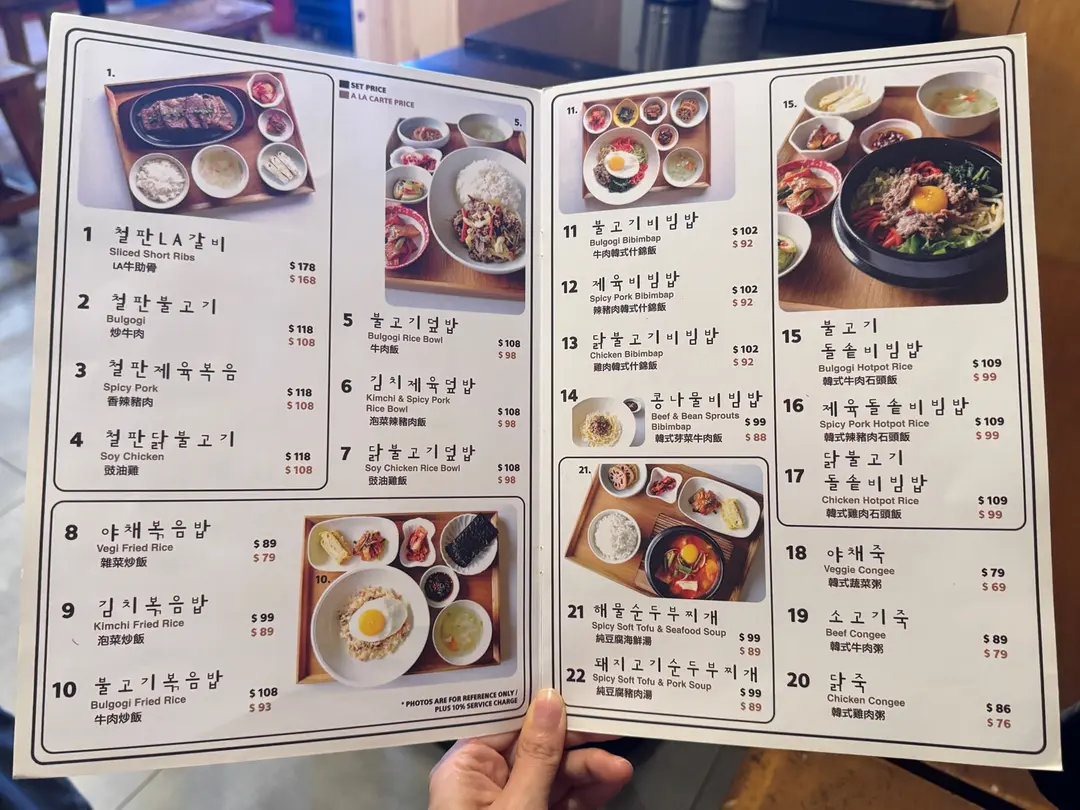 1.
철판LA갈비
1 Sliced Short Ribs
LA牛肋骨
$ 178
$ 168
2 철판불고기
Bulgogi
炒牛肉
$ 118
$ 108
3 철판제육볶음
Spicy Pork
香辣豬肉
$ 118
$ 108
4 철판닭불고기
Soy Chicken
豉油雞
$ 118
$ 108
SET PRICE
A LA CARTE PRICE
5.
5 불고기덮밥
Bulgogi Rice Bowl
牛肉飯
$ 108
$ 98
6 김치제육덮밥
Kimchi & Spicy Pork
Rice Bowl
泡菜辣豬肉飯
$ 108
$ 98
7 닭불고기덮밥
Soy Chicken Rice Bowl
豉油雞飯
$ 108
$ 98
8 야채볶음밥
Vegi Fried Rice
雜菜炒飯
$ 89
$ 79
9 김치볶음밥
Kimchi Fried Rice
泡菜炒飯
$ 99
$ 89
10 불고기볶음밥
Bulgogi Fried Rice
牛肉炒飯
$ 108
$ 93
10.
* PHOTOS ARE FOR REFERENCE ONLY /
PLUS 10% SERVICE CHARGE
11.
11 불고기비빔밥
Bulgogi Bibimbap
牛肉韓式什錦飯
$ 102
$ 92
12 제육비빔밥
Spicy Pork Bibimbap
辣豬肉韓式什錦飯
$ 102
$ 92
13 닭불고기비빔밥
Chicken Bibimbap
雞肉韓式什錦飯
$ 102
$ 92
14 콩나물비빔밥
Beef & Bean Sprouts
Bibimbap
韓式芽菜牛肉飯
$ 99
$ 88
21.
21 해물순두부찌개
Spicy Soft Tofu & Seafood Soup
純豆腐海鮮湯
$ 99
$ 89
22 돼지고기순두부찌개
Spicy Soft Tofu & Pork Soup
純豆腐豬肉湯
$ 99
$ 89
15.
15 불고기
돌솥비빔밥
Bulgogi Hotpot Rice
韓式牛肉石頭飯
$ 109
$ 99
16 제육돌솥비빔밥
Spicy Pork Hotpot Rice
韓式辣豬肉石頭飯
$ 109
$ 99
17 닭불고기
돌솥비빔밥
Chicken Hotpot Rice
韓式雞肉石頭飯
$ 109
$ 99
18 야채죽
Veggie Congee
韓式蔬菜粥
$ 79
$ 69
19 소고기죽
Beef Congee
韓式牛肉粥
$ 89
$ 79
20 닭죽
Chicken Congee
韓式雞肉粥
$ 86
$ 76